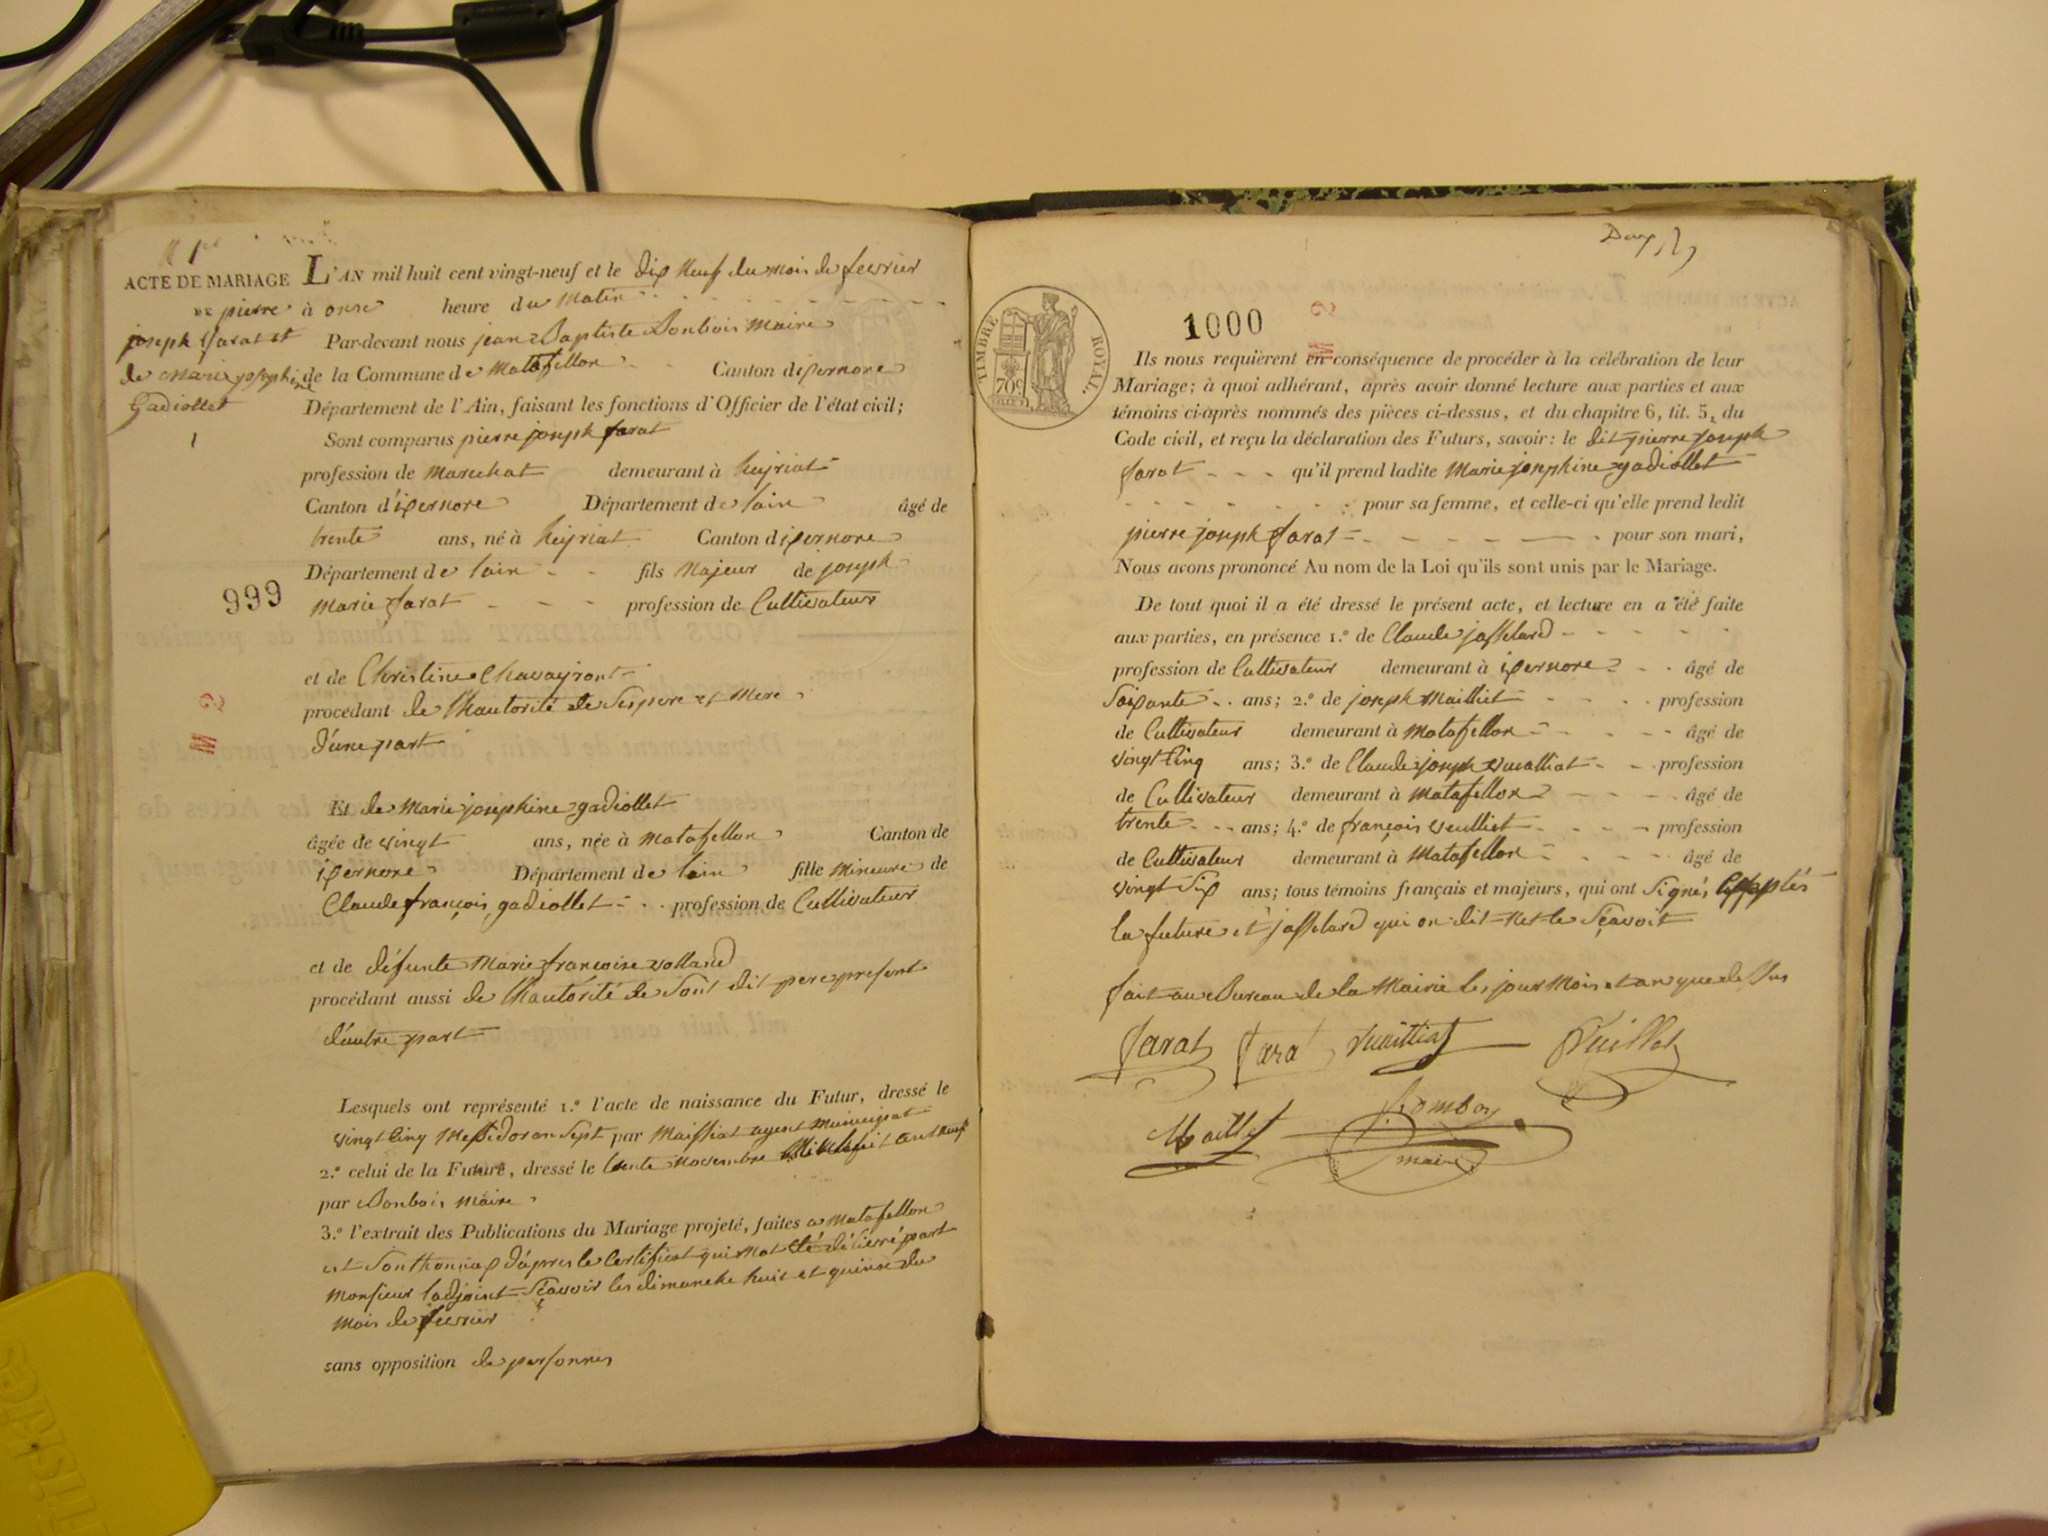 ACTE DE MARIAGE
de pierre
joseph farat et
de Marie josephine
Gadiollet
1
999
M 2
L'AN mil huit cent vingt-neuf et le dix Neuf du mois de fevrier
à onse heure du Matin
Par-devant nous jean Baptiste Bonbois Maire
de la Commune de Matafellon Canton d'ixernore
Département de l'Ain, faisant les fonctions d'Officier de l'état civil;
Sont comparus pierre joseph farat
profession de Marechat demeurant à heyriat
Canton d'ixernore Département de lain âgé de
trente ans, né à heyriat Canton d'ixernore
Département de lain fils Majeur de joseph
Marie farat profession de Cultivateur
et de Christine Chavayront
procédant de l'hautorité de Ses pere et Mere
d'une part
Et de Marie josephine gadiollet
âgée de vingt ans, née à Matafellon Canton de
ixernore Département de lain fille Mineure de
Claude françois gadiollet profession de Cultivateur
et de défunte Marie françoise volland
procédant aussi de l'hautorité de Son dit pere present
d'autre part
Lesquels ont représenté 1.º l'acte de naissance du Futur, dressé le
vingt Cinq Messidor an Sept par Maissiat agent Municipat
2.º celui de la Future, dressé le trente Novembre Mil huit Cent neuf
par Bonbois Maire
3.º l'extrait des Publications du Mariage projeté, faites a Matafellon
et Sonthonnax d'apres le Certificat qui Mat été délivré part
Monsieur l'adjoint Sçavoir les dimanche huit et quinse du
Mois de fevrier
sans opposition de personnes
Deux
TIMBRE ROYAL.
70c
1000
M 2
Ils nous requièrent en conséquence de procéder à la célébration de leur
Mariage; à quoi adhérant, après avoir donné lecture aux parties et aux
témoins ci-après nommés des pièces ci-dessus, et du chapitre 6, tit. 5, du
Code civil, et reçu la déclaration des Futurs, savoir: le dit pierre joseph
farat qu'il prend ladite Marie josephine gadiollet
pour sa femme, et celle-ci qu'elle prend ledit
pierre joseph farat pour son mari,
Nous avons prononcé Au nom de la Loi qu'ils sont unis par le Mariage.
De tout quoi il a été dressé le présent acte, et lecture en a été faite
aux parties, en présence 1.º de Claude jasselard
profession de Cultivateur demeurant à ixernore âgé de
Soixante ans; 2.º de joseph Mailliet profession
de Cultivateur demeurant à Matafellon âgé de
vingt Cinq ans; 3.º de Claude joseph vuailliat profession
de Cultivateur demeurant à Matafellon âgé de
trente ans; 4.º de françois veulliet profession
de Cultivateur demeurant à Matafellon âgé de
vingt Six ans; tous témoins français et majeurs, qui ont Signés
la future et jasselard qui on dit Net le Sçavoit
fait au Bureau de la Mairie les jour Mois et an que de Sus
farat fara vuailliat
Maillet Bombois
maire